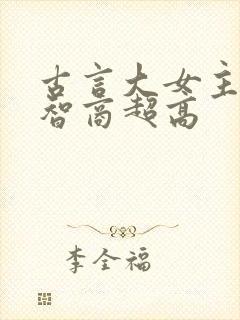 古言大女主
智商超高
李全福